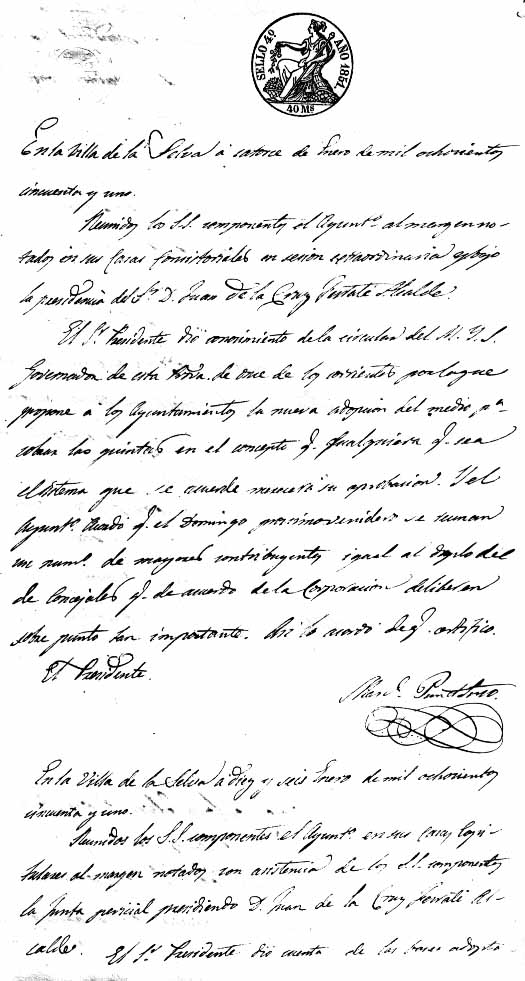 SELLO 4º AÑO 1851.
40 Ms
En la Villa de la Selva á catorce de Enero de mil ochocientos
cincuenta y uno.
Reunidos los S.S. componentes el Ayuntº. al margen no-
tados en sus Casas Consitoriales en sesion extraordinaria y bajo
la presidencia del Sr. D. Juan de la Cruz Alcalde.
El Sr. Presidente dio conocimiento de la circular del M. Y. S.
Governador de esta Prova. de once de los corrientes por la que
propone á los Ayuntamientos la nueva adopcion del medio pa.
cubrir las quintas en el concepto q. qualquiera q. sea
el sistema que se acuerde merecerá su aprobacion. Y el
Ayuntº. acordó q. el Domingo procsimo venidero se reunan
un numº. de mayores contribuyentes igual al duplo del
de Concejales q. de acuerdo de la Corporacion deliberen
sobre punto tan importante. Asi lo acordó de q. certifico.
El Presidente.
En la Villa de la Selva a diez y seis Enero de mil ochocientos
cincuenta y uno.
Reunidos los S.S. componentes el Ayuntº. en sus Casas Capi-
tulares al margen notados con asistencia de los S.S. componentes
la Junta pericial presidiendo D. Juan de la Cruz Al-
calde. El Sr. Presidente dio cuenta de las bases adopta-